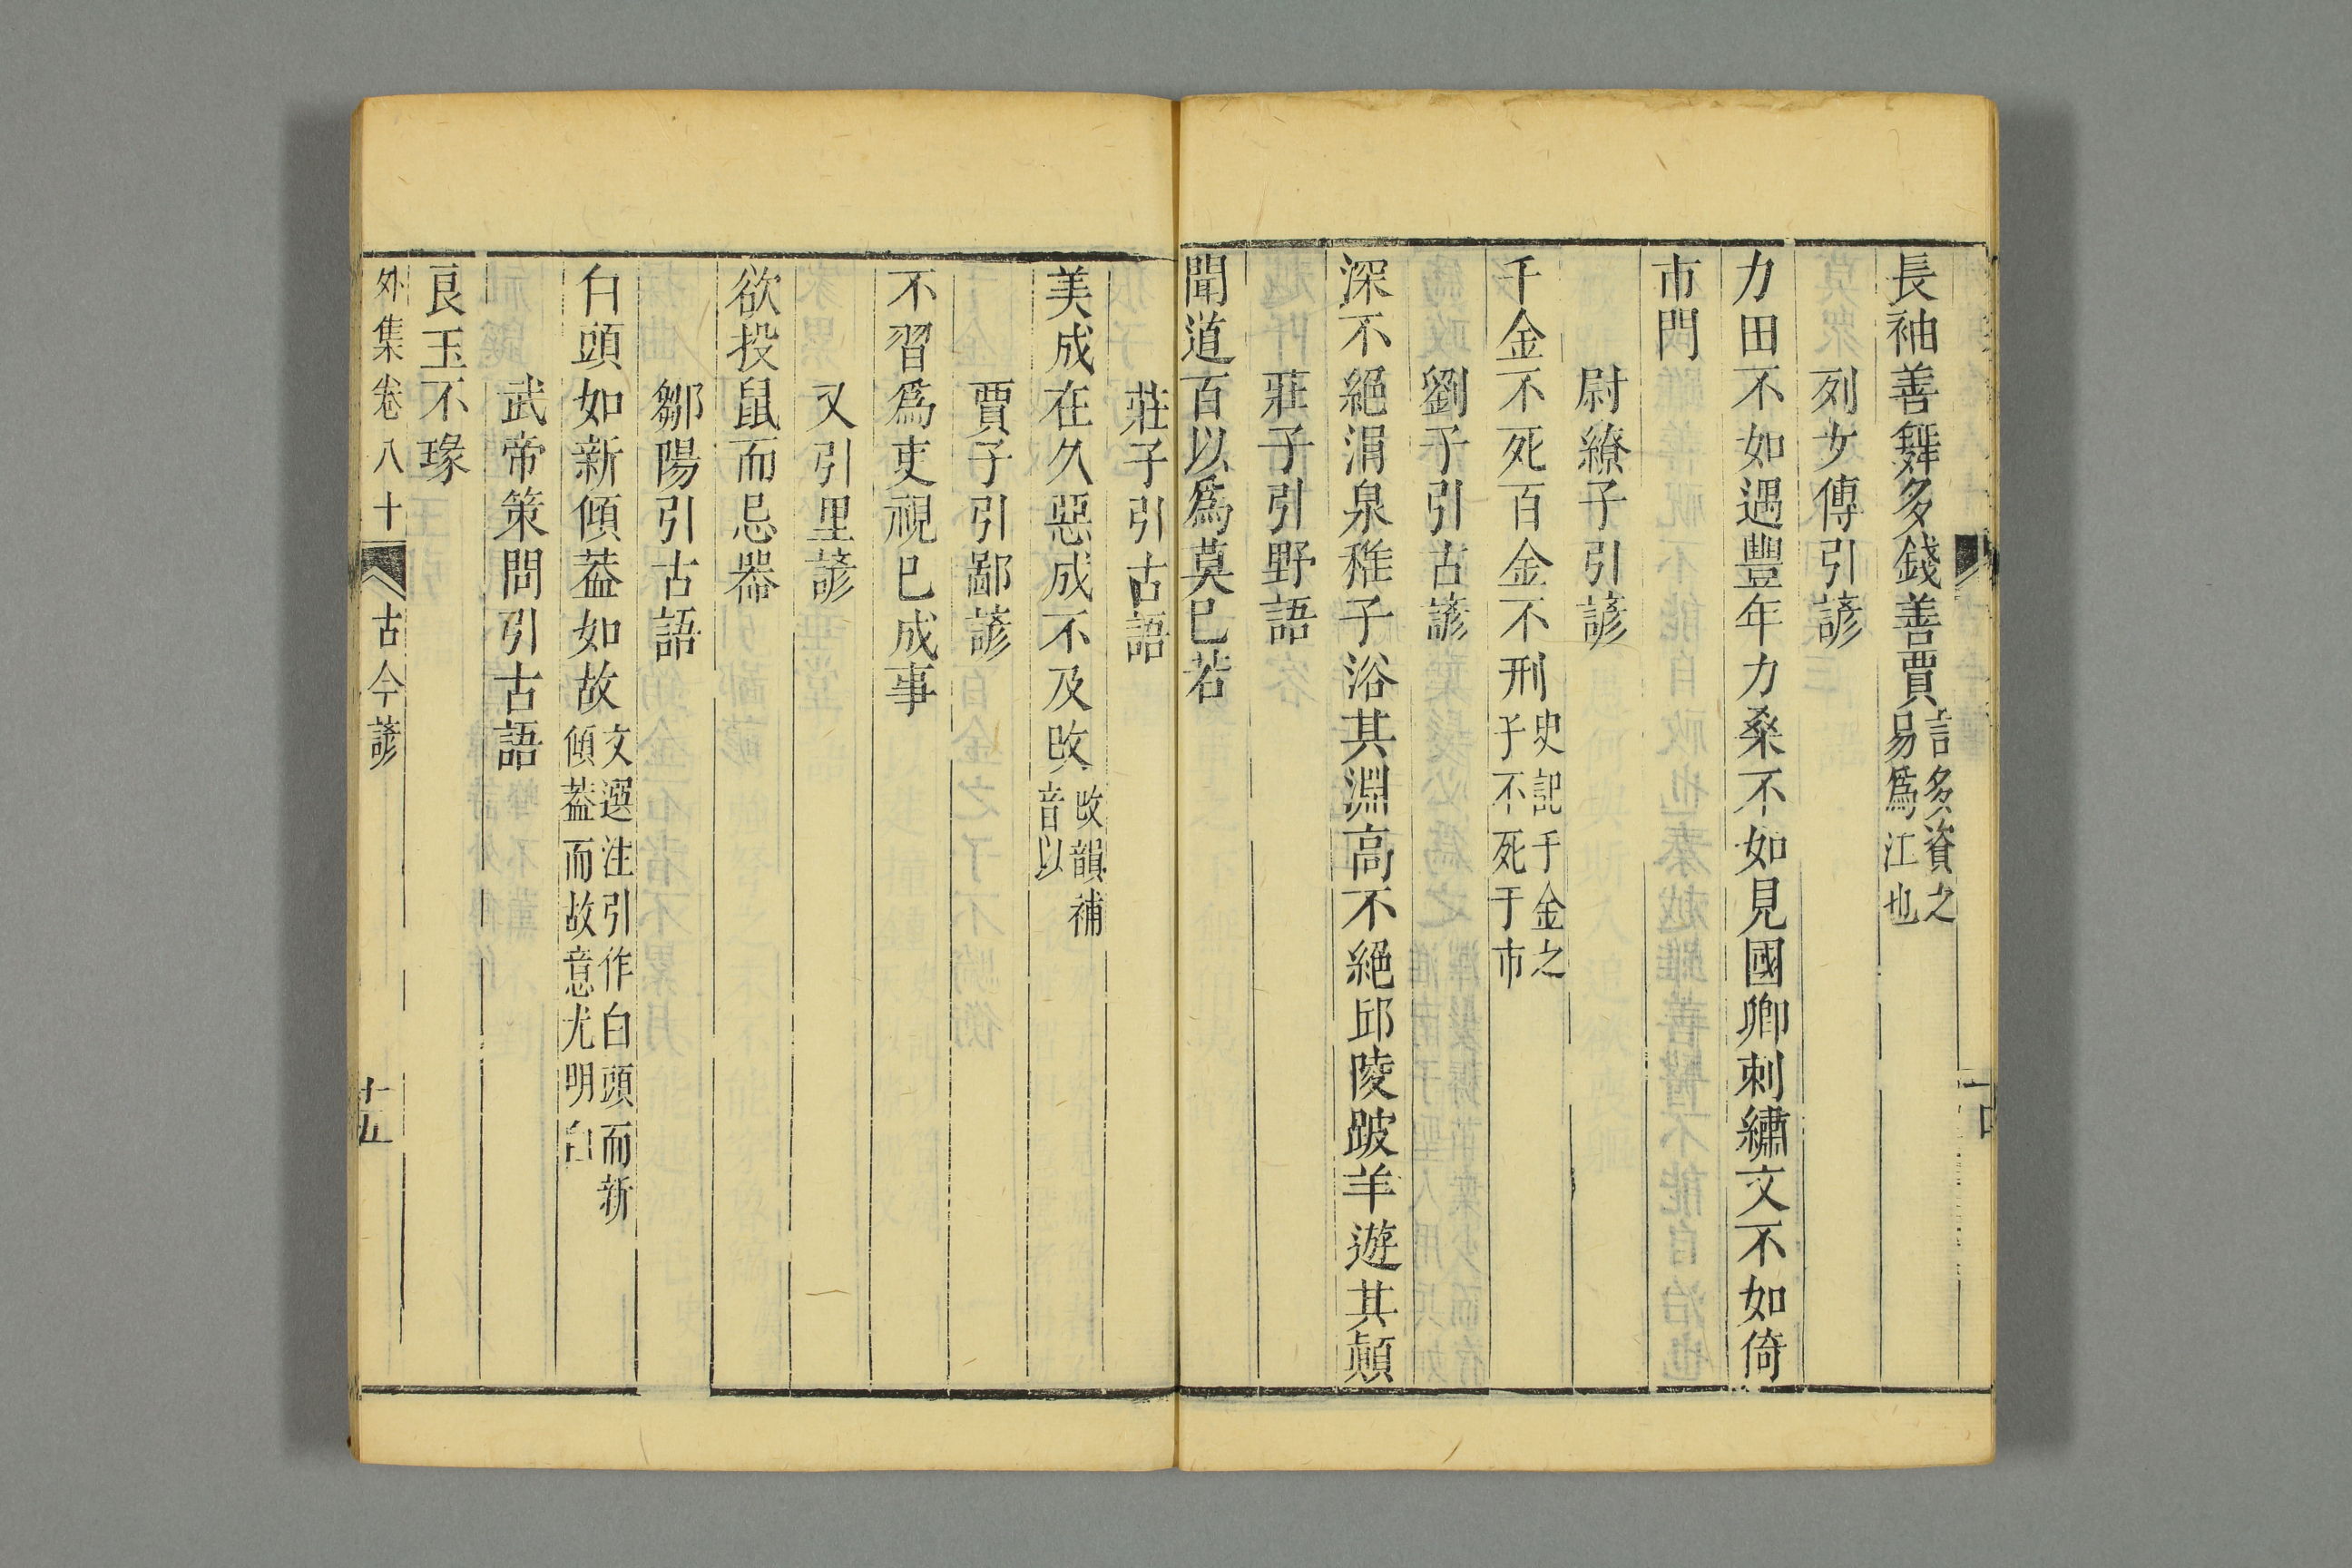 長袖善舞多錢善賈言多資之易爲江也
列女傳引諺
力田不如遇豐年力桑不如見國卿刺繡文不如倚
市門
尉繚子引諺
千金不死百金不刑史記千金之子不死于市
劉子引古諺
深不絕涓泉稚子浴其淵高不絕邱陵跛羊遊其顛
莊子引野語
聞道百以爲莫已若
莊子引古語
美成在久惡成不及改改韻補音以
賈子引鄙諺
不習爲吏視已成事
又引里諺
欲投鼠而忌器
鄒陽引古語
白頭如新傾葢如故文選注引作白頭而新傾葢而故意尤明白
武帝策問引古語
良玉不瑑
外集卷八十 古今諺 十五